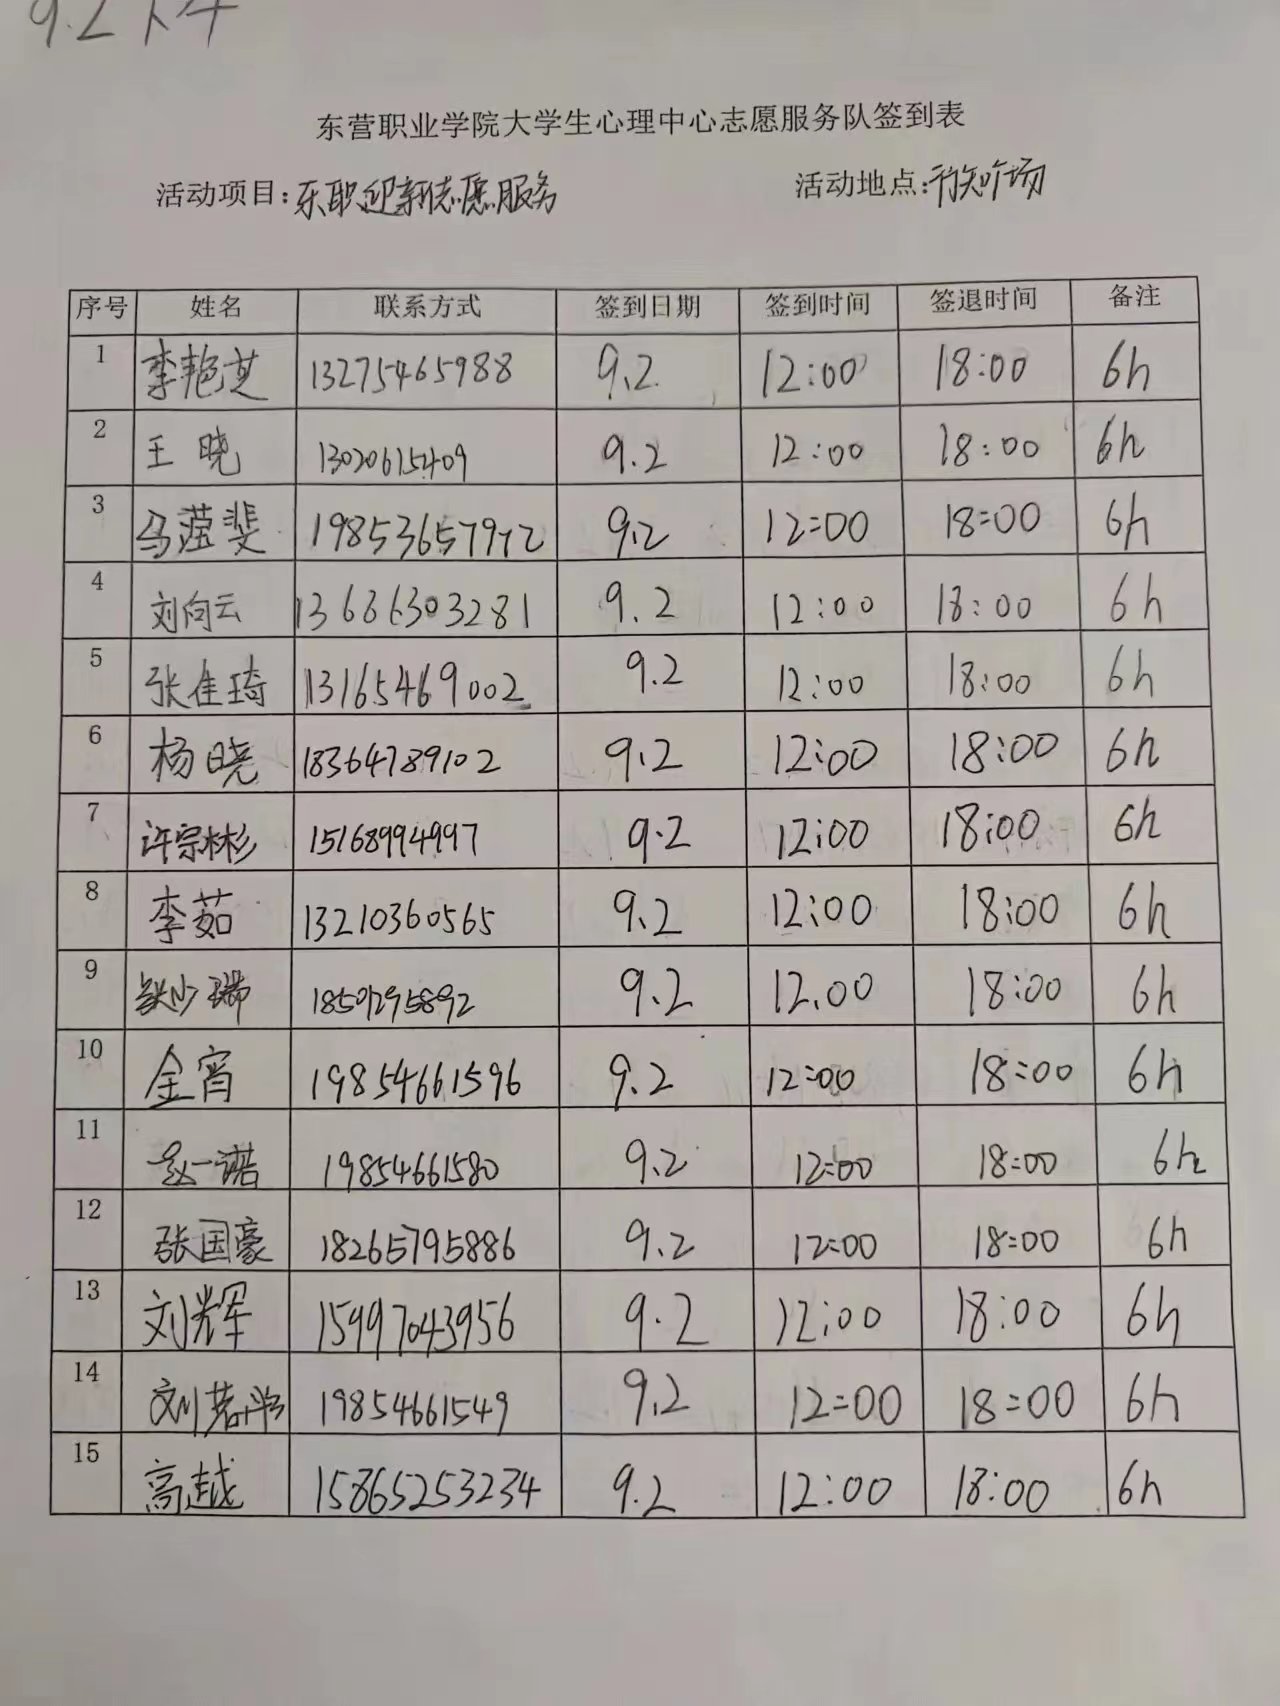 9.2下午
东营职业学院大学生心理中心志愿服务队签到表
活动项目:东职迎新志愿服务 活动地点:行知广场
序号 姓名 联系方式 签到日期 签到时间 签退时间 备注
1 李艳芝 13275465988 9.2 12:00 18:00 6h
2 王晓 13020615409 9.2 12:00 18:00 6h
3 马滢斐 19853657972 9.2 12:00 18:00 6h
4 刘向云 13636303281 9.2 12:00 18:00 6h
5 张佳琦 13165469002 9.2 12:00 18:00 6h
6 杨晓 18364789102 9.2 12:00 18:00 6h
7 许宗彬 15168994997 9.2 12:00 18:00 6h
8 李茹 13210360565 9.2 12:00 18:00 6h
9 少瑞 9.2 12.00 18:00 6h
10 金宵 19854661596 9.2 12:00 18:00 6h
11 赵一诺 19854661580 9.2 12:00 18:00 6h
12 张国豪 18265795886 9.2 12:00 18:00 6h
13 刘辉 15997043956 9.2 12:00 18:00 6h
14 刘 19854661549 9.2 12:00 18:00 6h
15 高越 15865253234 9.2 12:00 18:00 6h